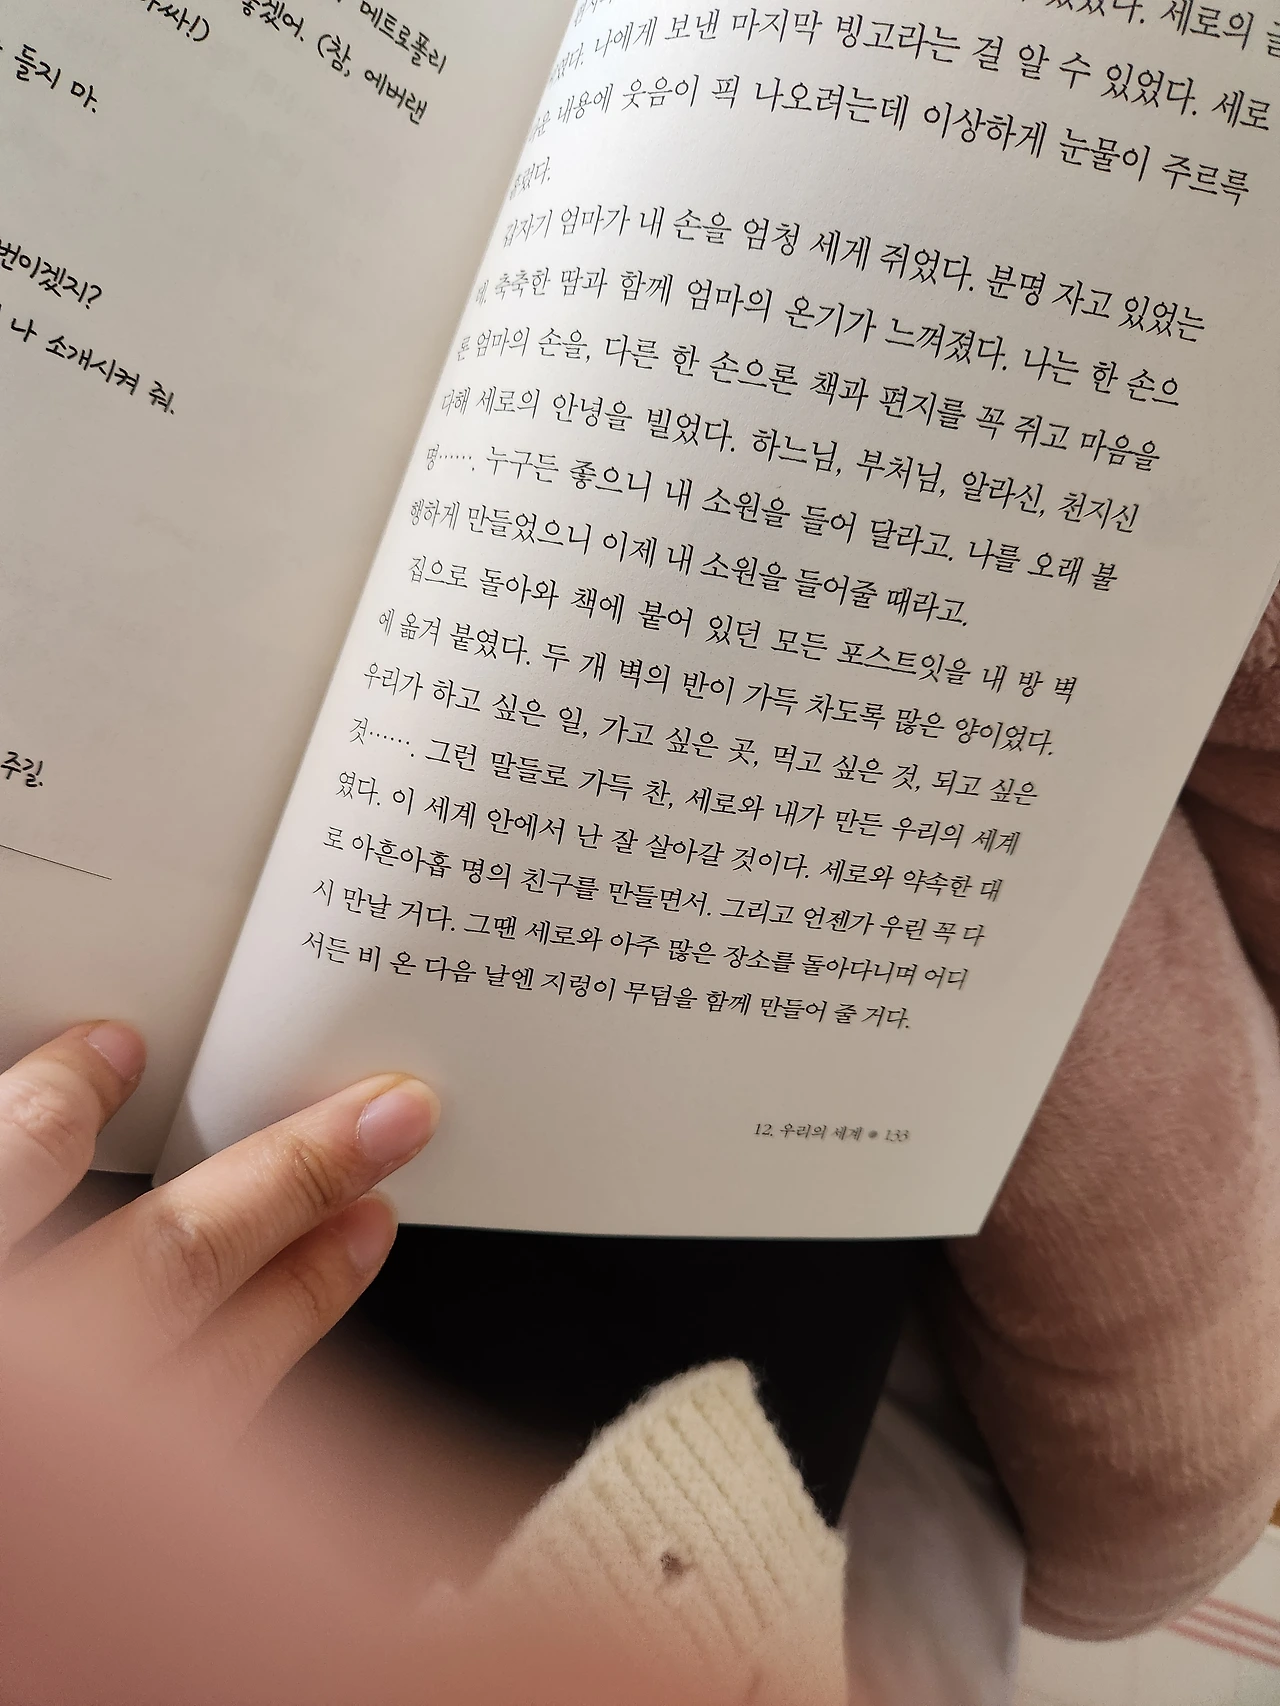 메트로폴리
좋겠어. (참, 에버랜
들지 마.
나 소개시켜 줘.
주길.
세로의
나에게 보낸 마지막 빙고라는 걸 알 수 있었다. 세로
내용에 웃음이 픽 나오려는데 이상하게 눈물이 주르륵
갑자기 엄마가 내 손을 엄청 세게 쥐었다. 분명 자고 있었는
데. 축축한 땀과 함께 엄마의 온기가 느껴졌다. 나는 한 손으
론 엄마의 손을, 다른 한 손으론 책과 편지를 꼭 쥐고 마음을
다해 세로의 안녕을 빌었다. 하느님, 부처님, 알라신, 천지신
명……. 누구든 좋으니 내 소원을 들어 달라고. 나를 오래 불
행하게 만들었으니 이제 내 소원을 들어줄 때라고.
집으로 돌아와 책에 붙어 있던 모든 포스트잇을 내 방 벽
에 옮겨 붙였다. 두 개 벽의 반이 가득 차도록 많은 양이었다.
우리가 하고 싶은 일, 가고 싶은 곳, 먹고 싶은 것, 되고 싶은
것……. 그런 말들로 가득 찬, 세로와 내가 만든 우리의 세계
였다. 이 세계 안에서 난 잘 살아갈 것이다. 세로와 약속한 대
로 아흔아홉 명의 친구를 만들면서. 그리고 언젠가 우린 꼭 다
시 만날 거다. 그땐 세로와 아주 많은 장소를 돌아다니며 어디
서든 비 온 다음 날엔 지렁이 무덤을 함께 만들어 줄 거다.
12. 우리의 세계 ● 133